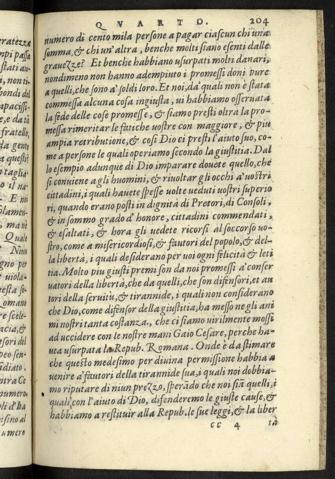 QVARTO. 204
numero di cento mila persone a pagar ciascun chi una
somma, & chi un'altra, benche molti siano esenti dalle
grauezze? Et benche habbiano usurpati molti danari,
nondimeno non hanno adempiuto i promessi doni pure
a quelli, che sono a' soldi loro. Et noi, da' quali non è stata
commessa alcuna cosa ingiusta, ui habbiamo osseruata
la fede delle cose promesse, & siamo presti oltra la pro-
messa rimeritar le fatiche uostre con maggiore, & piu
ampia retributione, & cosi Dio ci presti l'aiuto suo, co-
me a persone le quali operiamo secondo la giustitia. Dal
lo esempio adunque di Dio imparare douete quello, che
si conuiene a gli huomini, & riuoltar gli occhi a' uostri
cittadini, i quali hauete spesse uolte ueduti uostri superio
ri, quando erano posti in dignità di Pretori, di Consoli,
& in sommo grado d'honore, cittadini commendati,
& esaltati, & hora gli uedete ricorsi al soccorso uo-
stro, come a misericordiosi, & fautori del popolo, & del-
la libertà, i quali desiderano per uoi ogni felicità & leti
tia. Molto piu giusti premi son da noi promessi a' conser
uatori della libertà, che da quelli, che son difensori, et au
tori della seruitù, & tirannide, i quali non considerano
che Dio, come difensor della giustitia, ha messo ne gli ani
mi nostri tanta costanza, che ci siamo uirilmente mossi
ad uccidere con le nostre mani Gaio Cesare, perche ha-
uea usurpata la Repub. Romana. Onde è da stimare
che questo medesimo per diuina permissione habbia a
uenire a' fautori della tirannide sua, i quali noi dobbia-
mo riputare di niun prezzo, sperādo che noi siā quelli, i
quali, con l'aiuto di Dio, difenderemo le giuste cause, &
habbiamo a restituir alla Repub. le sue leggi, & la liber
cc 4 ta